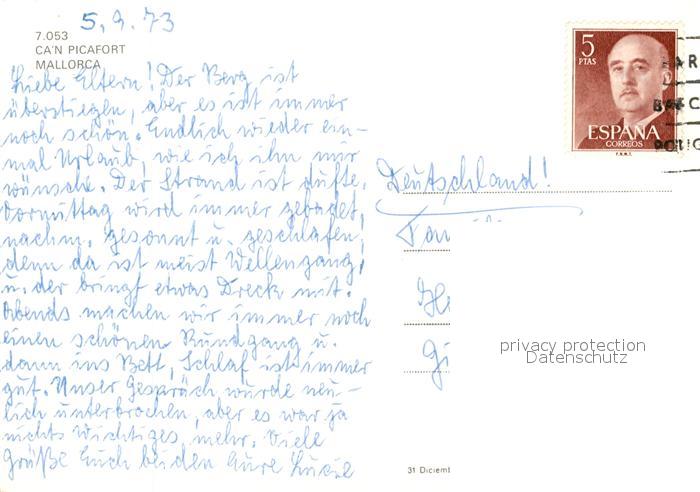 5.9.73
7.053
CA'N PICAFORT
MALLORCA
Liebe Eltern! Der Berg ist
überstiegen, aber es ist immer
noch schön. Endlich wieder ein-
mal Urlaub, wie ich ihn mir
wünsche. Der Strand ist dufte.
Vormittag wird immer gebadet,
nachm. gesonnt u. geschlafen,
denn da ist meist Wellengang,
u. der bringt etwas Dreck mit.
Abends machen wir immer noch
einen schönen Rundgang u.
dann ins Bett, Schlaf ist immer
gut. Unser Gespräch wurde neu-
lich unterbrochen, aber es war ja
nichts Wichtiges mehr. Viele
Grüße Euch beiden Eure
5
PTAS
ESPAÑA
CORREOS
F.N.M.T.
Deutschland!
privacy protection
Datenschutz
31 Diciemb